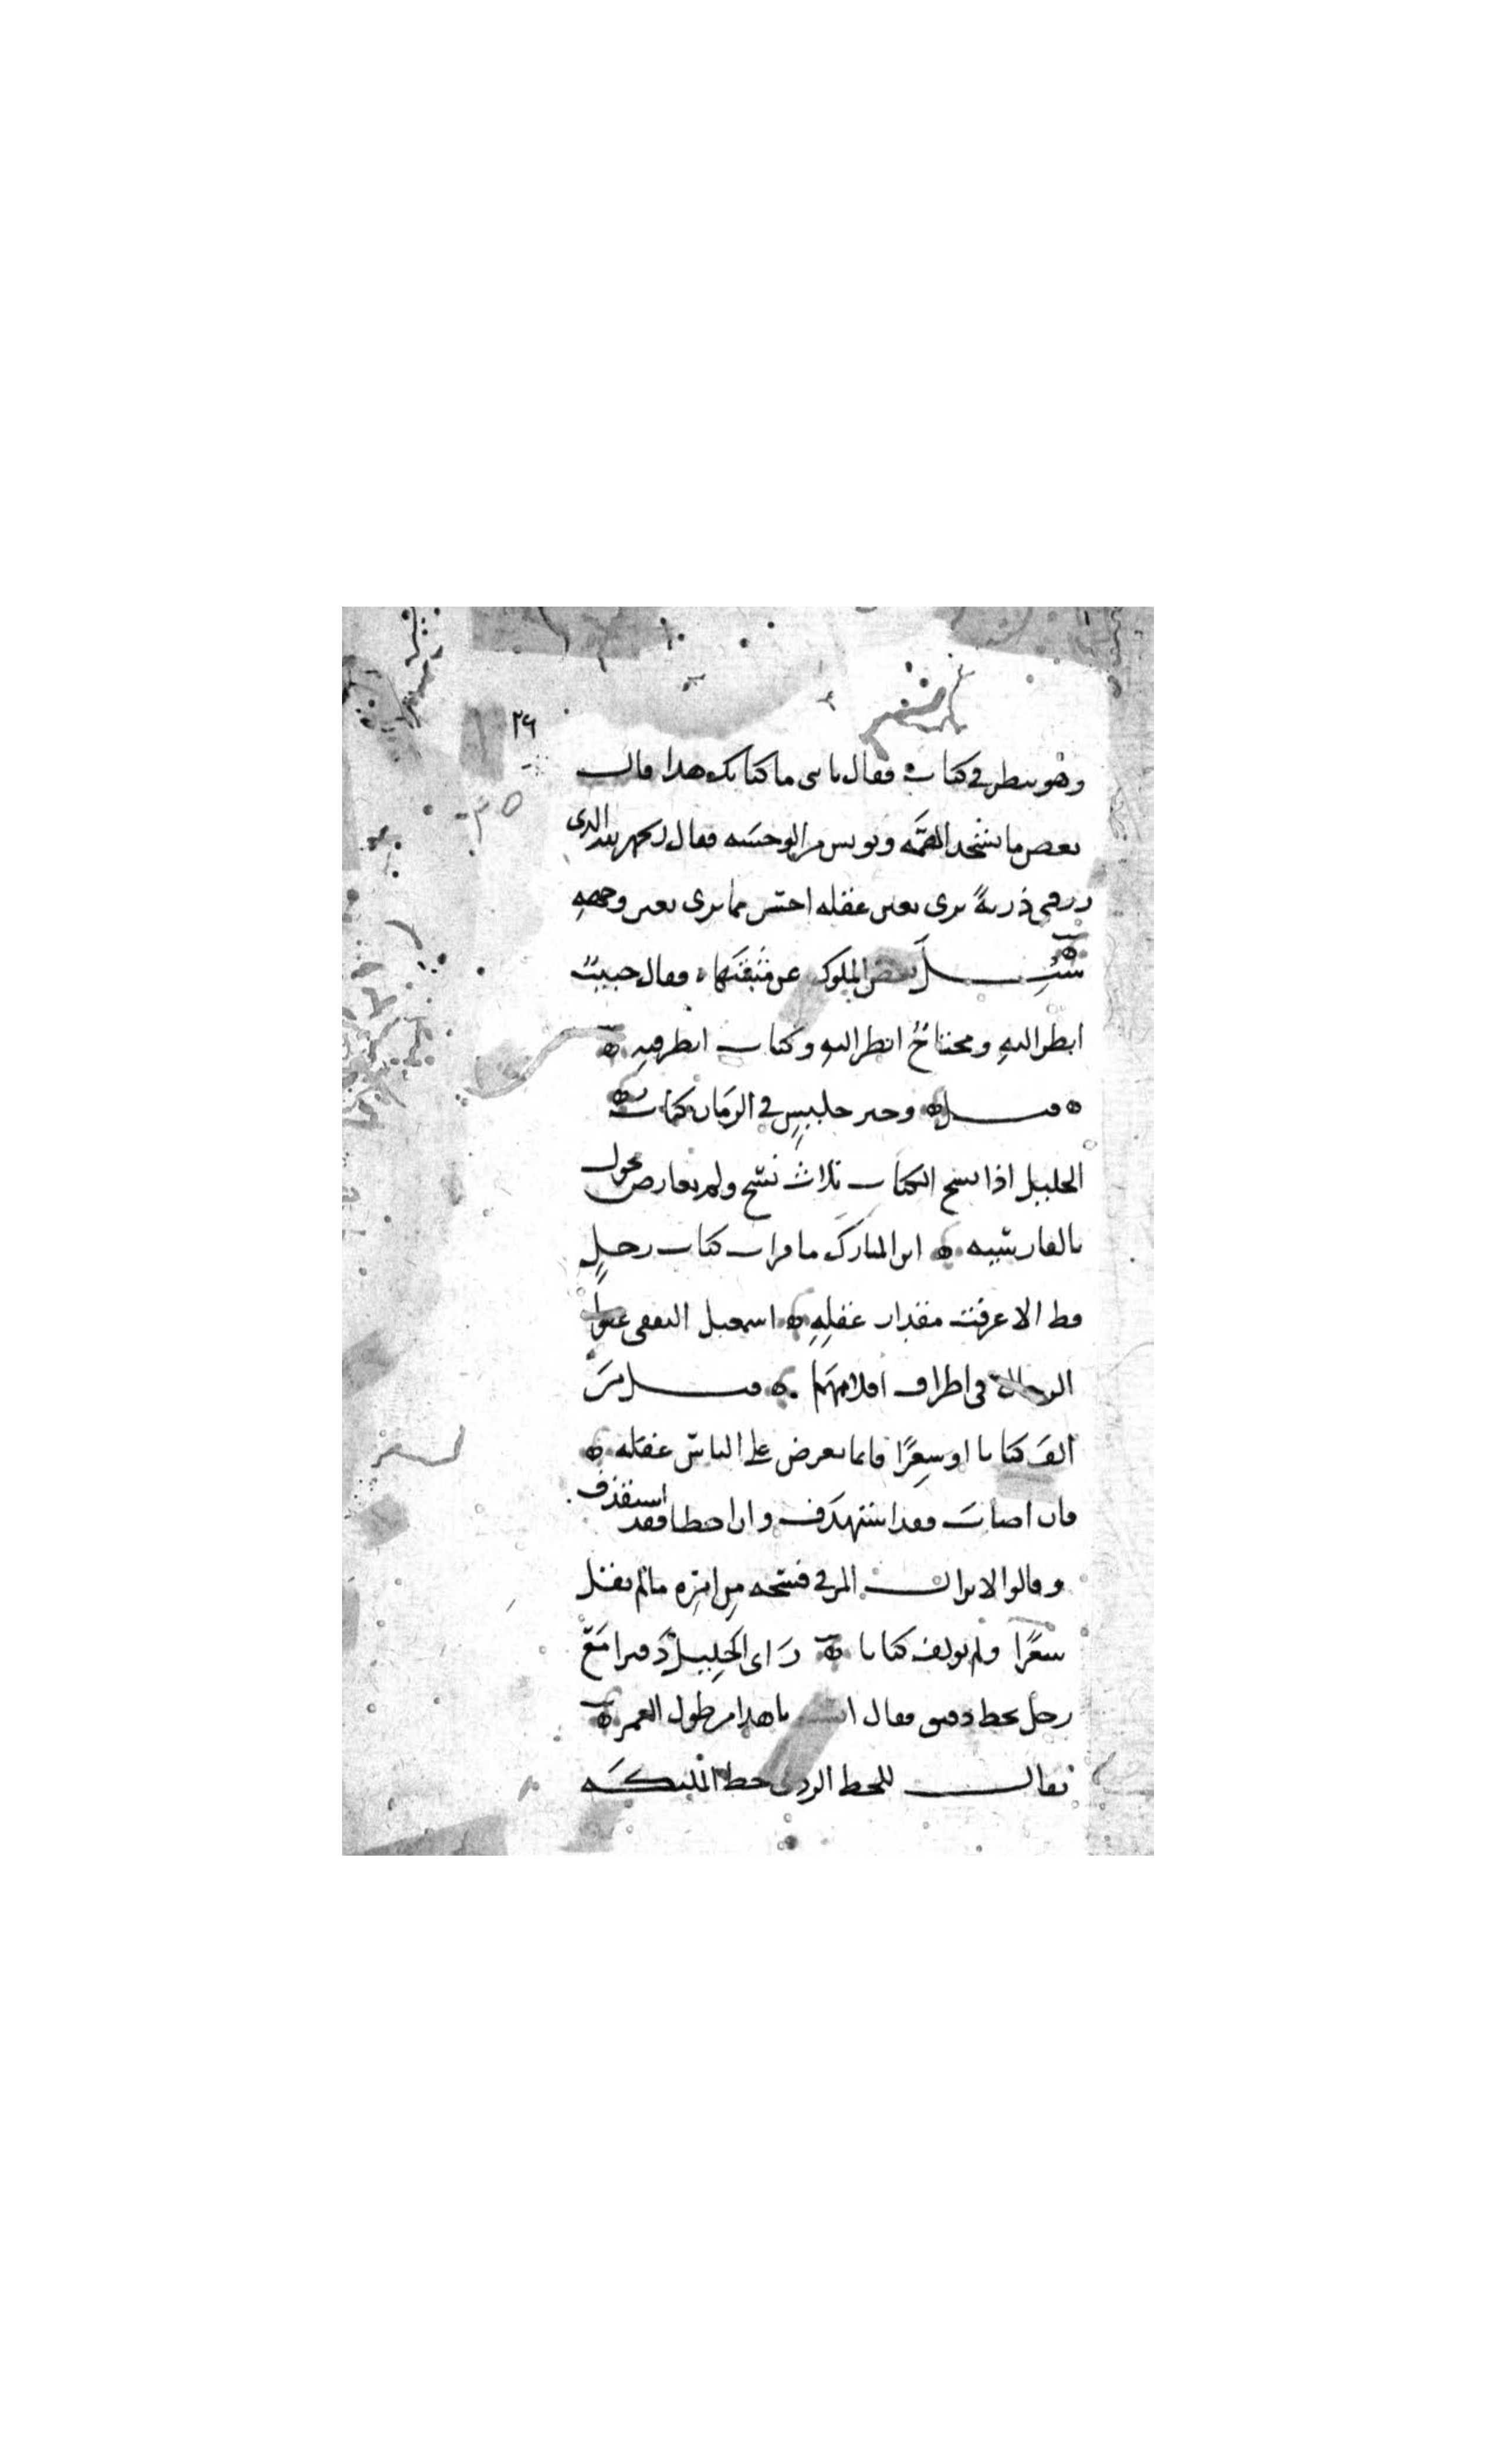 ٢٦
وهو ينظر في كتاب فقال يا بني ما كتابك هذا قال
بعض ما يشحذ الهمه ويونس من الوحشه فقال الحمد لله الذي
رزقني ذرية يرى بعين عقله احسن مما يرى بعين وجهه
سئل بعض الملوك عن فقال حبيب
انظر اليه ومحتاج انظر اليه وكتاب انظر فيه
قيل وخير جليس في الزمان كتاب
الخليل اذا نسخ الكتاب ثلاث نسخ ولم يعارض تحول
بالفارسيه ابن المبارك ما قرات كتاب رجل
قط الا عرفت مقدار عقله اسمعيل الثقفي عقول
الرجال في اطراف اقلامهم قيل من
الف كتابا او شعرا فانما يعرض على الناس عقله
فان اصاب فقد استهدف وان اخطا فقد استقذف
وقالوا لا يزال المر في فسحه من امره ما لم يقل
شعرا ولم يولف كتابا راى الخليل دفترا مع
رجل بخط دقيق فقال ايست يا هذا من طول العمر
يقال للخط الردي خط المليكه